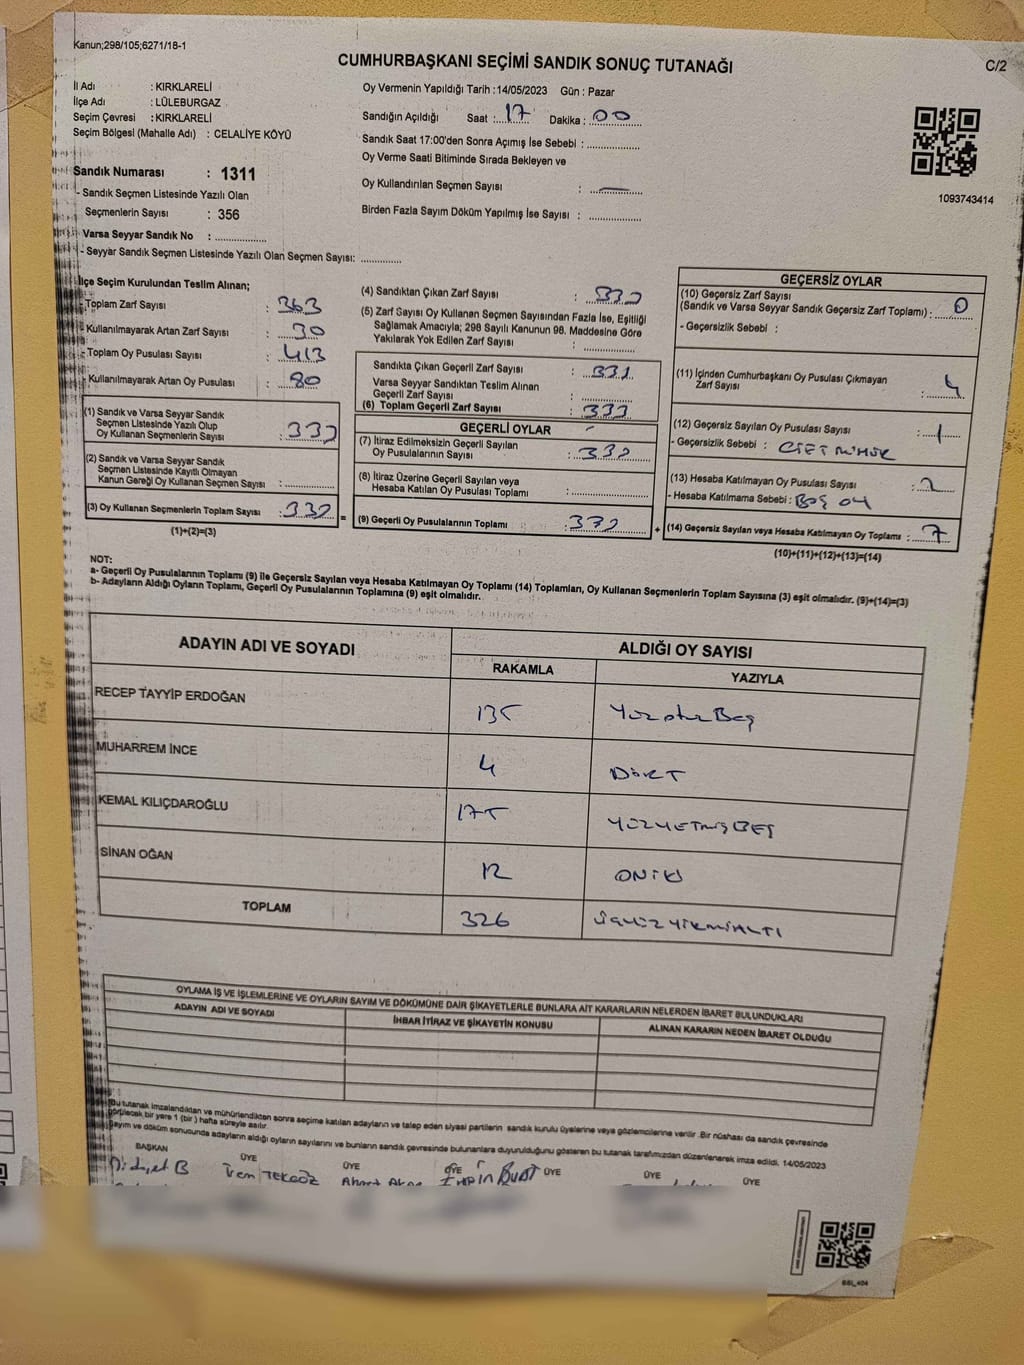 Kanun;298/105;6271/18-1
CUMHURBAŞKANI SEÇİMİ SANDIK SONUÇ TUTANAĞI
C/2
İl Adı : KIRKLARELİ
İlçe Adı : LÜLEBURGAZ
Seçim Çevresi : KIRKLARELİ
Seçim Bölgesi (Mahalle Adı) : CELALİYE KÖYÜ
Sandık Numarası : 1311
- Sandık Seçmen Listesinde Yazılı Olan
Seçmenlerin Sayısı : 356
Varsa Seyyar Sandık No : ..................
- Seyyar Sandık Seçmen Listesinde Yazılı Olan Seçmen Sayısı: ..............
Oy Vermenin Yapıldığı Tarih :14/05/2023 Gün : Pazar
Sandığın Açıldığı Saat : 17 Dakika : 00
Sandık Saat 17:00'den Sonra Açımış İse Sebebi : ..................
Oy Verme Saati Bitiminde Sırada Bekleyen ve
Oy Kullandırılan Seçmen Sayısı : —
Birden Fazla Sayım Döküm Yapılmış İse Sayısı : ..................
1093743414
İlçe Seçim Kurulundan Teslim Alınan;
- Toplam Zarf Sayısı : 363
- Kullanılmayarak Artan Zarf Sayısı : 30
- Toplam Oy Pusulası Sayısı : 413
- Kullanılmayarak Artan Oy Pusulası : 80
(1) Sandık ve Varsa Seyyar Sandık
Seçmen Listesinde Yazılı Olup
Oy Kullanan Seçmenlerin Sayısı :
(2) Sandık ve Varsa Seyyar Sandık
Seçmen Listesinde Kayıtlı Olmayan
Kanun Gereği Oy Kullanan Seçmen Sayısı : ..................
(3) Oy Kullanan Seçmenlerin Toplam Sayısı : =
(1)+(2)=(3)
(4) Sandıktan Çıkan Zarf Sayısı :
(5) Zarf Sayısı Oy Kullanan Seçmen Sayısından Fazla İse, Eşitliği
Sağlamak Amacıyla; 298 Sayılı Kanunun 98. Maddesine Göre
Yakılarak Yok Edilen Zarf Sayısı : ..................
Sandıkta Çıkan Geçerli Zarf Sayısı :
Varsa Seyyar Sandıktan Teslim Alınan
Geçerli Zarf Sayısı : ..................
(6) Toplam Geçerli Zarf Sayısı :
GEÇERLİ OYLAR
(7) İtiraz Edilmeksizin Geçerli Sayılan
Oy Pusulalarının Sayısı :
(8) İtiraz Üzerine Geçerli Sayılan veya
Hesaba Katılan Oy Pusulası Toplamı : ..................
(9) Geçerli Oy Pusulalarının Toplamı : +
GEÇERSİZ OYLAR
(10) Geçersiz Zarf Sayısı
(Sandık ve Varsa Seyyar Sandık Geçersiz Zarf Toplamı) : 0
- Geçersizlik Sebebi :
(11) İçinden Cumhurbaşkanı Oy Pusulası Çıkmayan
Zarf Sayısı : 4
(12) Geçersiz Sayılan Oy Pusulası Sayısı : 1
- Geçersizlik Sebebi : ÇİFT MÜHÜR
(13) Hesaba Katılmayan Oy Pusulası Sayısı : 2
- Hesaba Katılmama Sebebi : BOŞ OY
(14) Geçersiz Sayılan veya Hesaba Katılmayan Oy Toplamı : 7
(10)+(11)+(12)+(13)=(14)
NOT:
a- Geçerli Oy Pusulalarının Toplamı (9) ile Geçersiz Sayılan veya Hesaba Katılmayan Oy Toplamı (14) Toplamları, Oy Kullanan Seçmenlerin Toplam Sayısına (3) eşit olmalıdır. (9)+(14)=(3)
b- Adayların Aldığı Oyların Toplamı, Geçerli Oy Pusulalarının Toplamına (9) eşit olmalıdır.
ADAYIN ADI VE SOYADI
ALDIĞI OY SAYISI
RAKAMLA YAZIYLA
RECEP TAYYİP ERDOĞAN 135 Yüz otuz Beş
MUHARREM İNCE 4 DÖRT
KEMAL KILIÇDAROĞLU 175 YÜZYETMİŞBEŞ
SİNAN OĞAN 12 ONİKİ
TOPLAM 326 ÜÇYÜZYİRMİALTI
OYLAMA İŞ VE İŞLEMLERİNE VE OYLARIN SAYIM VE DÖKÜMÜNE DAİR ŞİKAYETLERLE BUNLARA AİT KARARLARIN NELERDEN İBARET BULUNDUKLARI
ADAYIN ADI VE SOYADI İHBAR İTİRAZ VE ŞİKAYETİN KONUSU ALINAN KARARIN NEDEN İBARET OLDUĞU
Bu tutanak imzalandıktan ve mühürlendikten sonra seçime katılan adayların ve talep eden siyasi partilerin sandık kurulu üyelerine veya gözlemcilerine verilir. Bir nüshası da sandık çevresinde
görülecek bir yere 1 (bir) hafta süreyle asılır.
Sayım ve döküm sonucunda adayların aldığı oyların sayılarını ve bunların sandık çevresinde bulunanlara duyurulduğunu gösteren bu tutanak tarafımızdan düzenlenerek imza edildi. 14/05/2023
BAŞKAN ÜYE ÜYE ÜYE ÜYE ÜYE ÜYE
İrem TEKGÖZ Ahmet